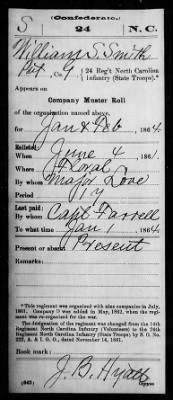 (Confederate.)
S 24 N.C.
William S. Smith
Pvt, Co. 24 Reg't North Carolina
Infantry (State Troops).*
Appears on
Company Muster Roll
of the organization named above,
for Jan & Feb, 1864.
Enlisted:
When June 4, 1861.
Where Floral
By whom Major Love
Period 1 y
Last paid:
By whom Capt Farrell
To what time Jan 1, 1864
Present or absent Present
Remarks:
*This regiment was organized with nine companies in July,
1861. Company D was added in May, 1862, when the regiment
was re-organized.
The designation of the regiment was changed from the 14th
Regiment North Carolina Infantry (Volunteers) to the 24th
Regiment North Carolina Infantry (State Troops) by S. O. No.
222, A. & I. G. O., dated November 14, 1861.
Book mark:
J. B. Hyatt
(642) Copyist.